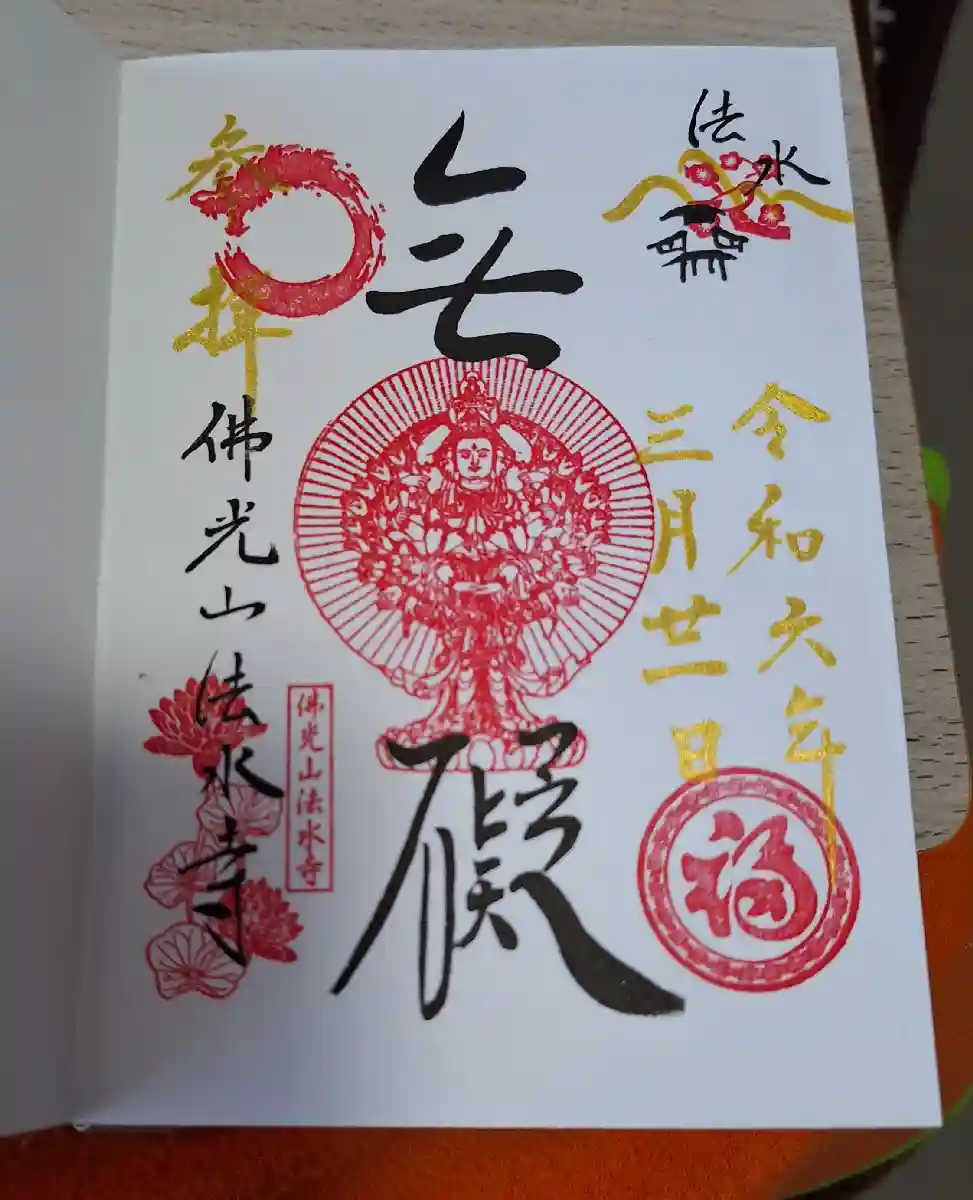 法水
令和六年
三月廿一日
福
無
礙
参拝
佛光山法水寺
佛光山法水寺